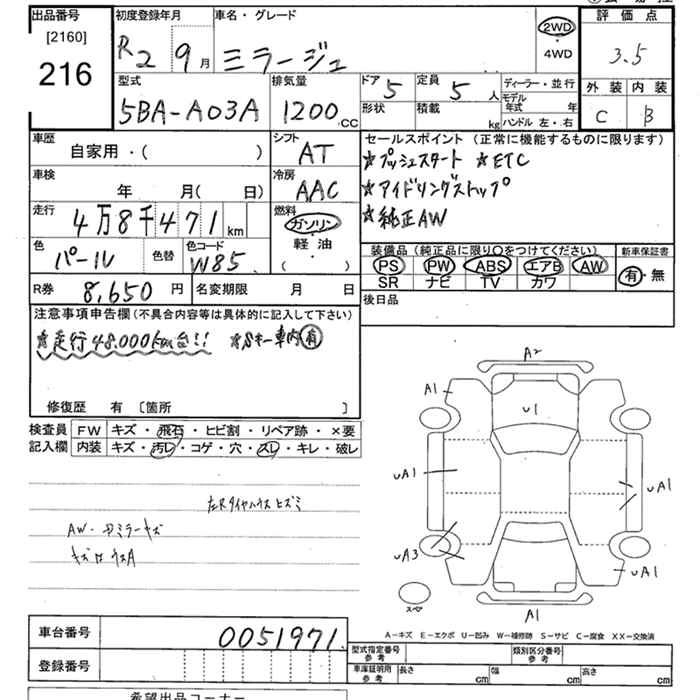 出品番号
[2160]
216
初度登録年月
R2 9月
車名・グレード
ミラージュ
2WD
・
4WD
評価点
3.5
外装 内装
C B
型式
5BA-A03A
排気量
1200 CC
ドア 5
形状
定員 5 人
積載 kg
ディーラー・並行
モデル年式 年
ハンドル 左・右
車歴
自家用・( )
シフト
AT
車検
年 月( 日)
冷房
AAC
走行
4万8千471km
燃料
ガソリン
軽油
・
( )
色
パール
色替
色コード
W85
R券 8,650円
名変期限 月 日
セールスポイント (正常に機能するものに限ります)
☆プッシュスタート ☆ETC
☆アイドリングストップ
☆純正AW
装備品 (純正品に限り○をつけてください)
PS PW ABS エアB AW
SR ナビ TV カワ
新車保証書
有・無
後日品
注意事項申告欄 (不具合内容等は具体的に記入して下さい)
☆走行48.000km台!! ☆Sキー車内有
修復歴 有 〔箇所 〕
検査員記入欄
FW キズ・飛石・ヒビ割・リペア跡・×要
内装 キズ・汚レ・コゲ・穴・スレ・キレ・破レ
左Rタイヤハウス ヒズミ
AW・ドミラーキズ
A2
A1
U1
UA1
UA1
UA3
UA1
A1
スペア
A-キズ E-エクボ U-凹み W-補修跡 S-サビ C-腐食 XX-交換済
車台番号
0051971
登録番号
型式指定番号 参考
類別区分番号 参考
車庫証明用 参考
長さ cm 幅 cm 高さ cm
希望出品コーナー